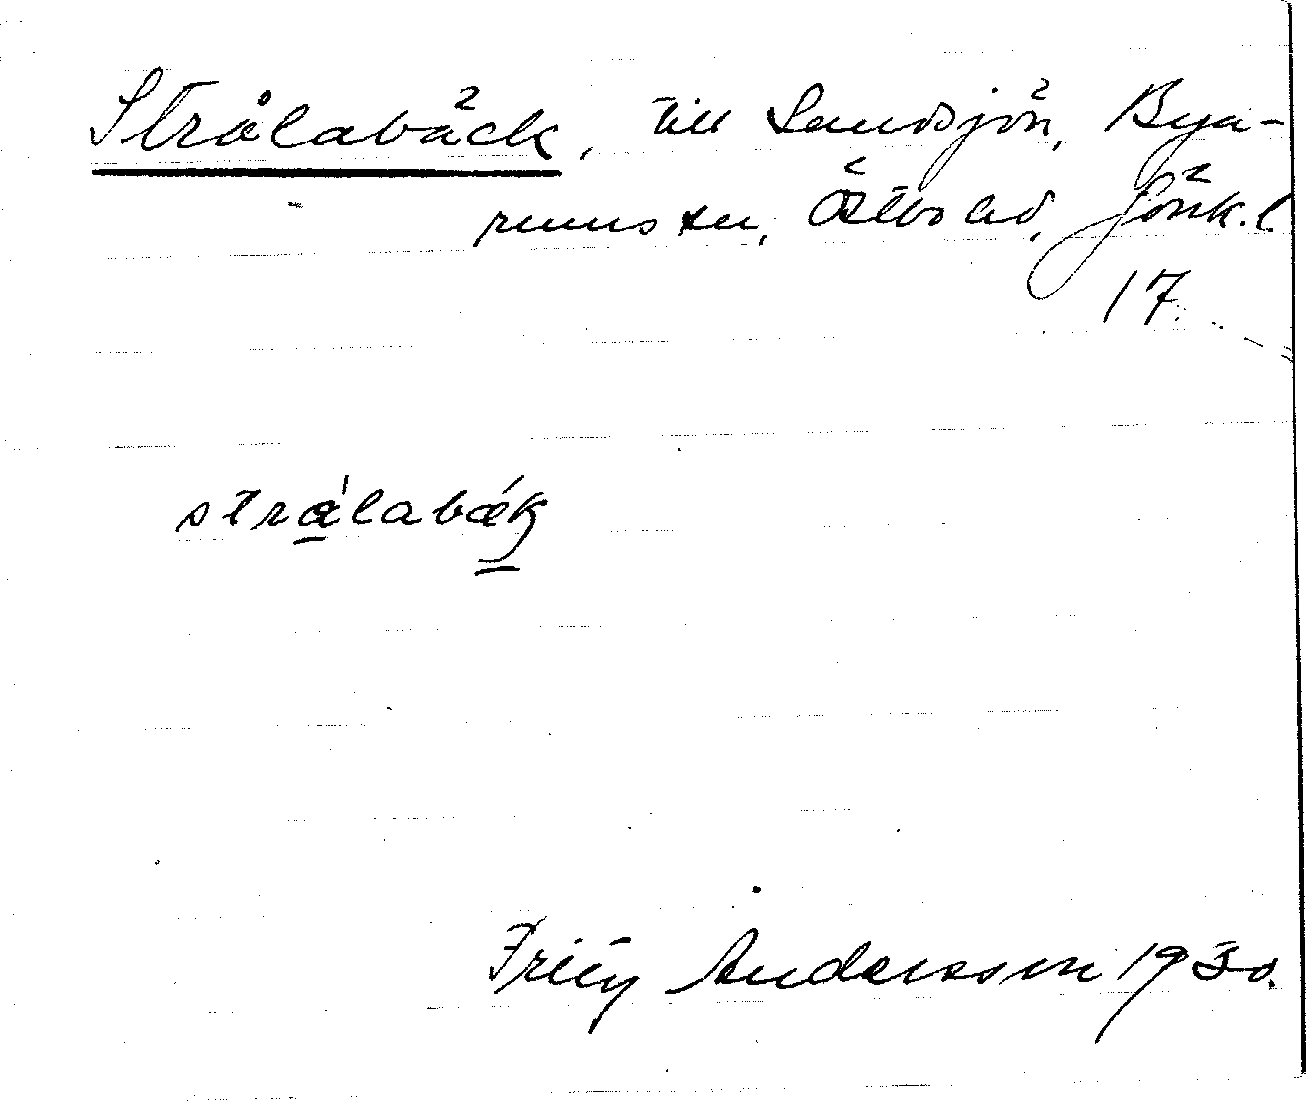 Strålabäck, till Sandsjön, Bya-
rums sn, Östbo hd, Jönk. l.
17.
strálabǽk
Fritz Andersson 1930.